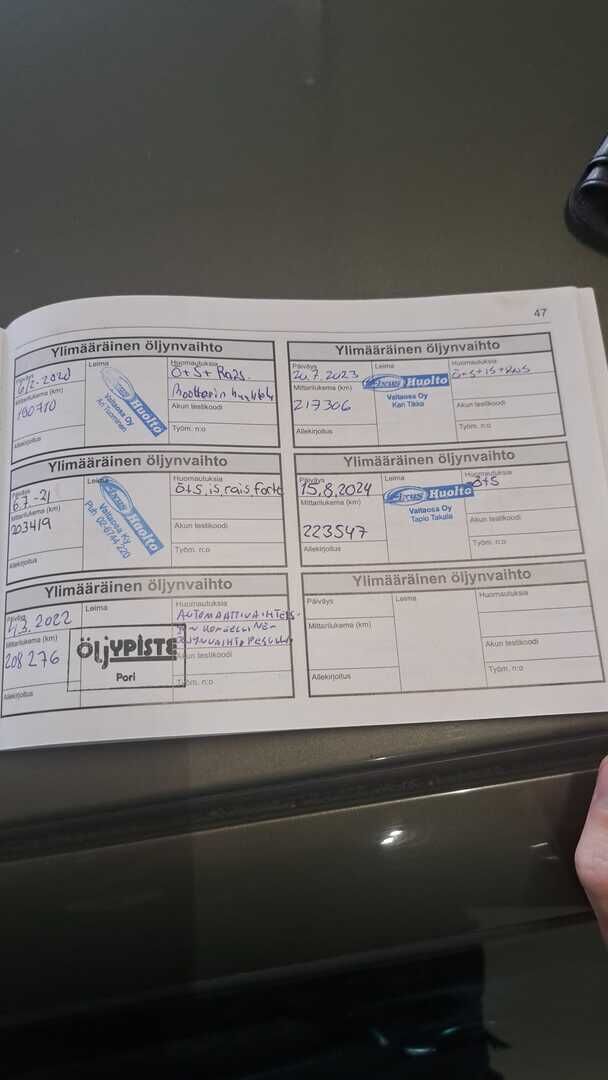 47
Ylimääräinen öljynvaihto
Päiväys
Leima
Huomautuksia
6/2-2020
Ö+S+Rais.
Mittarilukema (km)
190710
Akun testikoodi
Huolto
Valtaosa Oy
Ari Tuominen
Allekirjoitus
Työm. n:o
Ylimääräinen öljynvaihto
Päiväys
Leima
Huomautuksia
6.7-21
ö+S, is, rais forte
Mittarilukema (km)
203419
Akun testikoodi
Huolto
Valtaosa Ky
Puh. 02-6744 220
Allekirjoitus
Työm. n:o
Ylimääräinen öljynvaihto
Päiväys
Leima
Huomautuksia
4.3.2022
AUTOMAATTIVAIHTEIS-
TON KONEELLINEN
ÖLJYNVAIHTO
Mittarilukema (km)
208276
Akun testikoodi
ÖLJYPISTE
Pori
Allekirjoitus
Työm. n:o
Ylimääräinen öljynvaihto
Päiväys
Leima
Huomautuksia
20.7.2023
Ö+S+IS+RAIS
Mittarilukema (km)
217306
Akun testikoodi
Huolto
Valtaosa Oy
Kari Tikko
Allekirjoitus
Työm. n:o
Ylimääräinen öljynvaihto
Päiväys
Leima
Huomautuksia
15.8.2024
Ö+S
Mittarilukema (km)
223547
Akun testikoodi
Huolto
Valtaosa Oy
Tapio Takala
Allekirjoitus
Työm. n:o
Ylimääräinen öljynvaihto
Päiväys
Leima
Huomautuksia
Mittarilukema (km)
Akun testikoodi
Allekirjoitus
Työm. n:o